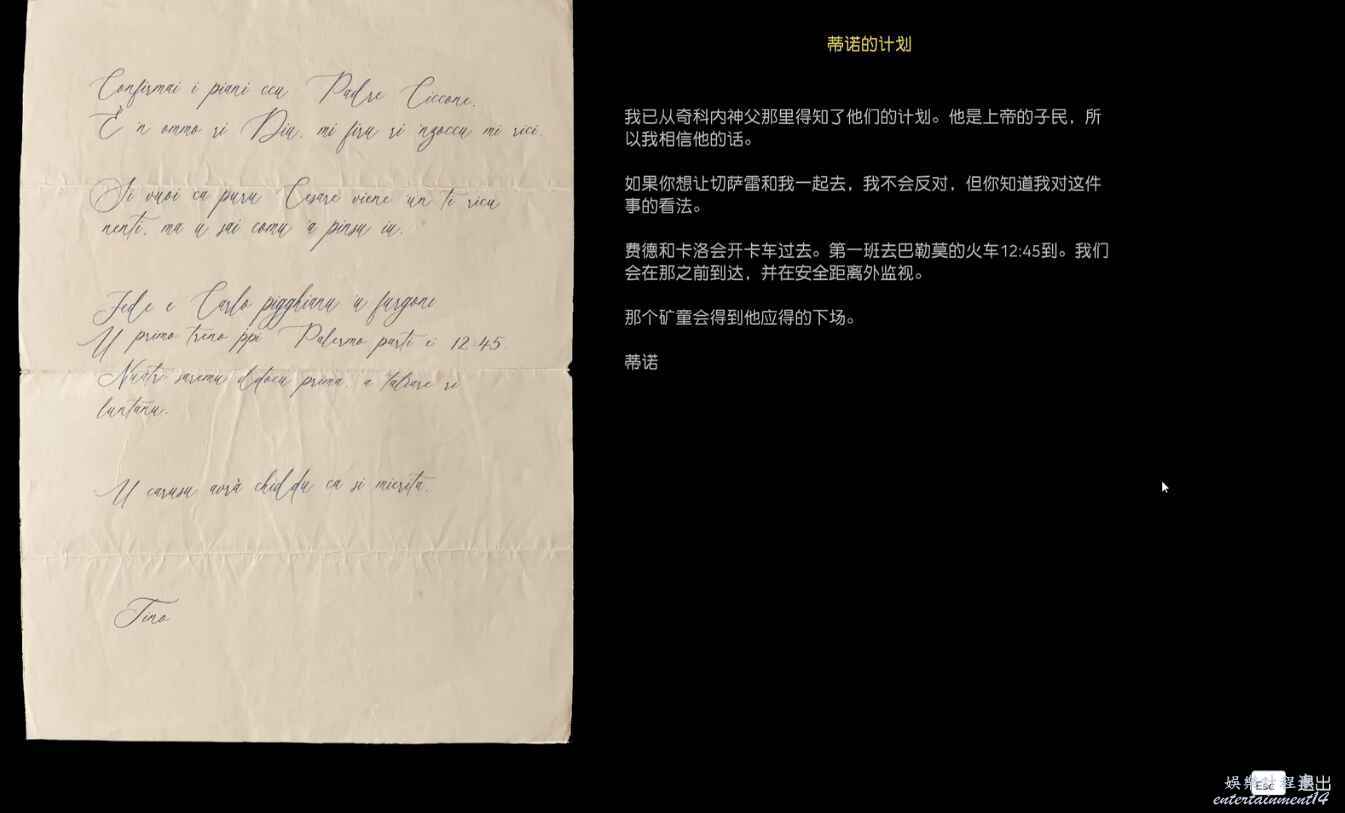 Confirmai i piani ccu Padre Ciccone.
È 'n ommo ri Diu, mi firu ri 'nzoccu mi rici.
Si vuoi ca puru Cesare viene un ti ricu
nenti, ma u sai comu 'a pinsu iu.
Fede e Carlo pigghianu 'u furgone
U primo treno ppi Palermo parti ê 12:45.
Nuatri saremu ddocu prima, a taliare ri
luntanu.
U carusu avrà chiddu ca si mierita.
Tino
蒂诺的计划
我已从奇科内神父那里得知了他们的计划。他是上帝的子民，所
以我相信他的话。
如果你想让切萨雷和我一起去，我不会反对，但你知道我对这件
事的看法。
费德和卡洛会开卡车过去。第一班去巴勒莫的火车12:45到。我们
会在那之前到达，并在安全距离外监视。
那个矿童会得到他应得的下场。
蒂诺
Esc 退出
entertainment14